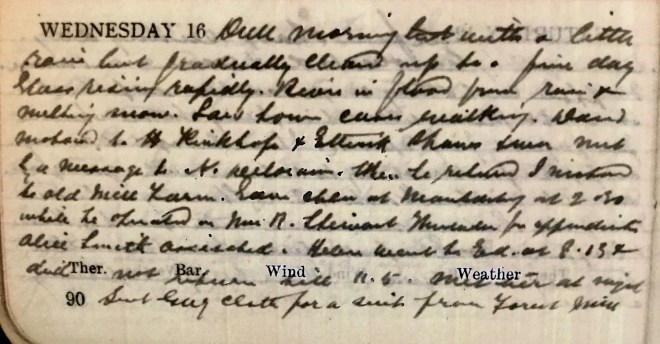 WEDNESDAY 16 Dull morning with a little
rain but gradually cleared up to a fine day
Glass rising rapidly. Rivers in flood from rain &
melting snow. Saw home cases walking. David
motored to W Kirkhope & Ettrick Shaws
a message to N. When he returned I motored
to old Mill Farm. Gave chlor at at 2.30
while he operated on Mrs R. Stewart for appendicitis
Alice Smith assisted. Helen went to Ed. at 8.15 &
did not return till 11.5. Met her at night
Ther. Bar. Wind Weather
90 Sent Guy cloth for a suit from Forest Mill